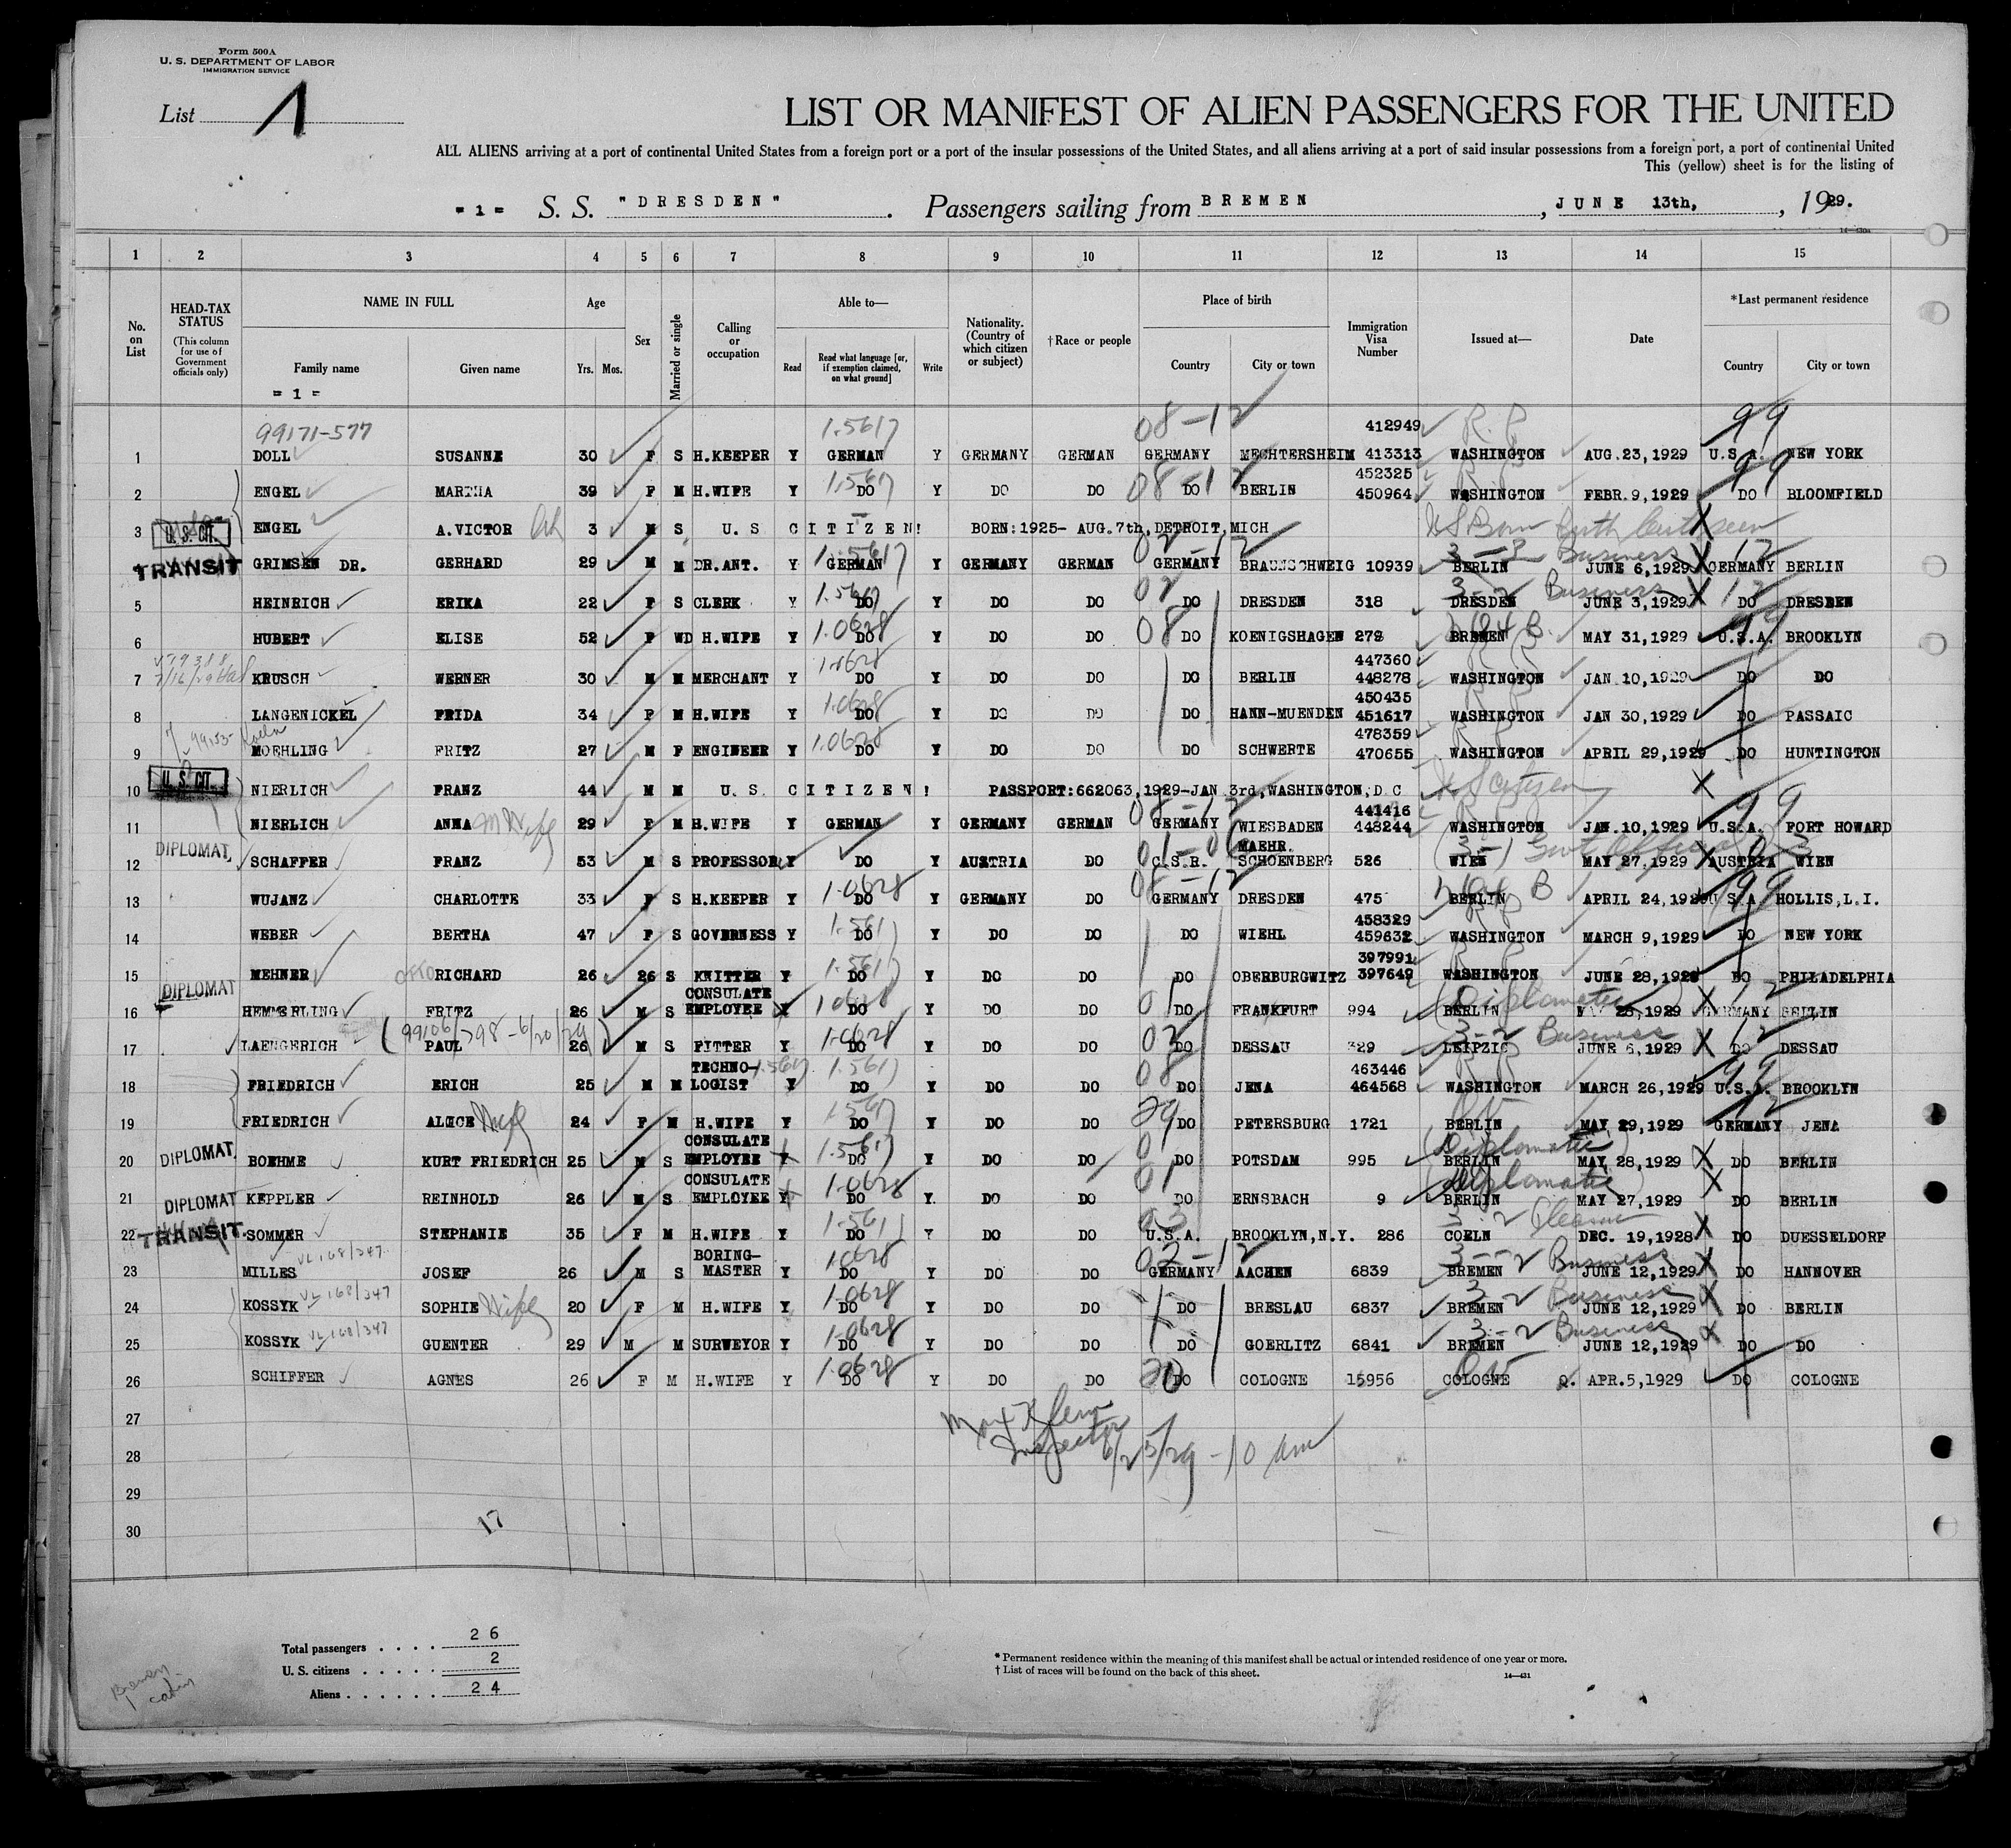 Form 500A
U. S. DEPARTMENT OF LABOR
IMMIGRATION SERVICE
List 1
LIST OR MANIFEST OF ALIEN PASSENGERS FOR THE UNITED
ALL ALIENS arriving at a port of continental United States from a foreign port or a port of the insular possessions of the United States, and all aliens arriving at a port of said insular possessions from a foreign port, a port of continental United
This (yellow) sheet is for the listing of
= 1 = S. S. "DRESDEN". Passengers sailing from BREMEN, JUNE 13th, 1929.
1 2 3 4 5 6 7 8 9 10 11 12 13 14 15
No. on List
HEAD-TAX STATUS (This column for use of Government officials only)
NAME IN FULL Family name Given name
Age Yrs. Mos.
Sex
Married or single
Calling or occupation
Able to— Read Read what language [or, if exemption claimed, on what ground] Write
Nationality. (Country of which citizen or subject)
†Race or people
Place of birth Country City or town
Immigration Visa Number
Issued at—
Date
*Last permanent residence Country City or town
= 1 =
99171-577 1.5617 08-12 412949 R.P 99
1 DOLL SUSANNE 30 F S H.KEEPER Y GERMAN Y GERMANY GERMAN GERMANY MECHTERSHEIM 413313 WASHINGTON AUG.23,1929 U.S.A. NEW YORK
1.5617 08-12 452325 99
2 ENGEL MARTHA 39 F M H.WIFE Y DO Y DO DO DO BERLIN 450964 WASHINGTON FEBR.9,1929 DO BLOOMFIELD
3 U.S. CIT. ENGEL A.VICTOR 3 M S U.S CITIZEN! BORN:1925- AUG.7th,DETROIT,MICH US Born Birth Cert seen X
1.5617 02-12 3-2 Business X 12
TRANSIT GRIMSEN DR. GERHARD 29 M M DR.ANT. Y GERMAN Y GERMANY GERMAN GERMANY BRAUNSCHWEIG 10939 BERLIN JUNE 6,1929 GERMANY BERLIN
1.5617 02 3-2 Business X 12
5 HEINRICH ERIKA 22 F S CLERK Y DO Y DO DO DO DRESDEN 318 DRESDEN JUNE 3,1929 DO DRESDEN
1.0628 08 99
6 HUBERT ELISE 52 F WD H.WIFE Y DO Y DO DO DO KOENIGSHAGEN 272 BREMEN MAY 31,1929 U.S.A. BROOKLYN
1.0628 447360
7 KRUSCH WERNER 30 M M MERCHANT Y DO Y DO DO DO BERLIN 448278 WASHINGTON JAN.10,1929 DO DO
1.0628 450435
8 LANGENICKEL FRIDA 34 F M H.WIFE Y DO Y DO DO DO HANN-MUENDEN 451617 WASHINGTON JAN 30,1929 DO PASSAIC
1.0628 478359
9 MOEHLING FRITZ 27 M F ENGINEER Y DO Y DO DO DO SCHWERTE 470655 WASHINGTON APRIL 29,1929 DO HUNTINGTON
10 U.S. CIT. NIERLICH FRANZ 44 M M U.S. CITIZEN! PASSPORT:662063,1929-JAN 3rd,WASHINGTON,D C U.S Citizen X
08-12 441416 99
11 NIERLICH ANNA Wife 29 F M H.WIFE Y GERMAN Y GERMANY GERMAN GERMANY WIESBADEN 443244 WASHINGTON JAN.10,1929 U.S.A. FORT HOWARD
01-06 MAEHR. 3-1 Govt Official
12 DIPLOMAT. SCHAFFER FRANZ 53 M S PROFESSOR Y DO Y AUSTRIA DO C.S.R. SCHOENBERG 526 WIEN MAY 27,1929 X AUSTRIA WIEN
1.0628 08-12 99
13 WUJANZ CHARLOTTE 33 F S H.KEEPER Y DO Y GERMANY DO GERMANY DRESDEN 475 BERLIN APRIL 24,1929 U.S.A. HOLLIS,L.I.
1.5617 458329
14 WEBER BERTHA 47 F S GOVERNESS Y DO Y DO DO DO WIEHL 459632 WASHINGTON MARCH 9,1929 DO NEW YORK
1.5617 397991
15 MEHNER OTTO RICHARD 26 26 S KNITTER Y DO Y DO DO DO OBERBURGWITZ 397649 WASHINGTON JUNE 28,1928 DO PHILADELPHIA
CONSULATE 1.0628 01 (Diplomatic) X 12
16 DIPLOMAT HEMMERLING FRITZ 26 M S EMPLOYEE Y DO Y DO DO DO FRANKFURT 994 BERLIN MAY 28,1929 GERMANY BERLIN
(99106/798-6/20/29) 1.0628 02 3-2 Business X 12
17 LAENGERICH PAUL 26 M S FITTER Y DO Y DO DO DO DESSAU 329 LEIPZIG JUNE 6,1929 DO DESSAU
TECHNO- 1.5617 1.5617 08 463446 99
18 FRIEDRICH ERICH 25 M M LOGIST Y DO Y DO DO DO JENA 464568 WASHINGTON MARCH 26,1929 U.S.A. BROOKLYN
1.5617 29 12
19 FRIEDRICH ALICE Wife 24 F M H.WIFE Y DO Y DO DO DO PETERSBURG 1721 BERLIN MAY 29,1929 GERMANY JENA
CONSULATE 1.5617 01 (Diplomatic)
20 DIPLOMAT. BOEHME KURT FRIEDRICH 25 M S EMPLOYEE Y DO Y DO DO DO POTSDAM 995 BERLIN MAY 28,1929 X DO BERLIN
CONSULATE 1.0628 01 (Diplomatic)
21 DIPLOMAT KEPPLER REINHOLD 26 M S EMPLOYEE Y DO Y. DO DO DO ERNSBACH 9 BERLIN MAY 27,1929 X DO BERLIN
1.5617 03 3-2 Pleasure
22 TRANSIT. SOMMER STEPHANIE 35 F M H.WIFE Y DO Y DO DO U.S.A. BROOKLYN,N.Y. 286 COELN DEC. 19,1928 X DO DUESSELDORF
VL 168/347 BORING- 1.0628 02-12 3-2 Business
23 MILLES JOSEF 26 M S MASTER Y DO Y DO DO GERMANY AACHEN 6839 BREMEN JUNE 12,1929 X DO HANNOVER
VL 168/347 1.0628 3-2 Business
24 KOSSYK SOPHIE Wife 20 F M H.WIFE Y DO Y DO DO DO BRESLAU 6837 BREMEN JUNE 12,1929 X DO BERLIN
VL 168/347 1.0628 3-2 Business
25 KOSSYK GUENTER 29 M M SURWEYOR Y DO Y DO DO DO GOERLITZ 6841 BREMEN JUNE 12,1929 X DO DO
1.0628 20
26 SCHIFFER AGNES 26 F M H.WIFE Y DO Y DO DO DO COLOGNE 15956 COLOGNE Q. APR.5,1929 DO COLOGNE
27
Max Klein
Inspector
28 6/25/29 - 10 am
29
30
17
Total passengers . . . . 26
U. S. citizens . . . . . 2
Aliens . . . . . . 24
Bremen
cabin
* Permanent residence within the meaning of this manifest shall be actual or intended residence of one year or more.
† List of races will be found on the back of this sheet.
14—431